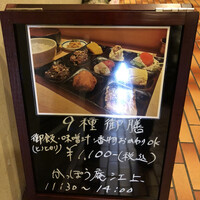 9種御膳
御飯・味噌汁・香物おかわりok
(とろろ)
¥1,100-(税込)
はっぽう庵 江上
11:30〜14:00